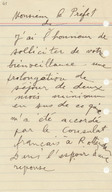 Monsieur le Préfet
j'ai l'honneur de
solliciter de votre
bienveillance une
prolongation de
séjour de deux
mois minimum
en sus de ce qui
m'a été accordé
par le Consulat
français à
Dans l'espoir d'une
réponse